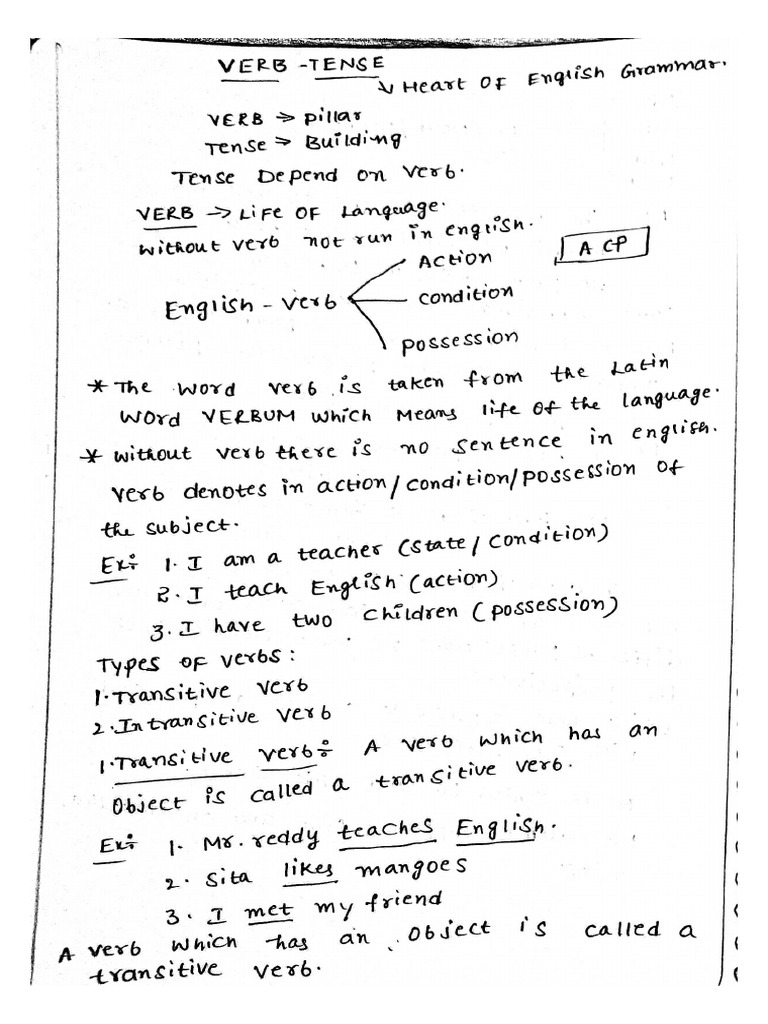 VERB - TENSE
↳ Heart OF English Grammar.
VERB ⇒ Pillar
Tense ⇒ Building
Tense Depend on Verb.
VERB → LIFE OF Language.
Without verb not run in english.
A CP
Action
English - verb
condition
possession
* The word verb is taken from the Latin
word VERBUM which Means life of the language.
* without verb there is no sentence in english.
verb denotes in action/condition/possession of
the subject.
Ex:- 1. I am a teacher (state/condition)
2. I teach English (action)
3. I have two children (possession)
Types of verbs:
1. Transitive verb
2. Intransitive verb
1. Transitive verb:- A verb which has an
object is called a transitive verb.
Ex:- 1. Mr. reddy teaches English.
2. Sita likes mangoes
3. I met my friend
A verb which has an object is called a
transitive verb.